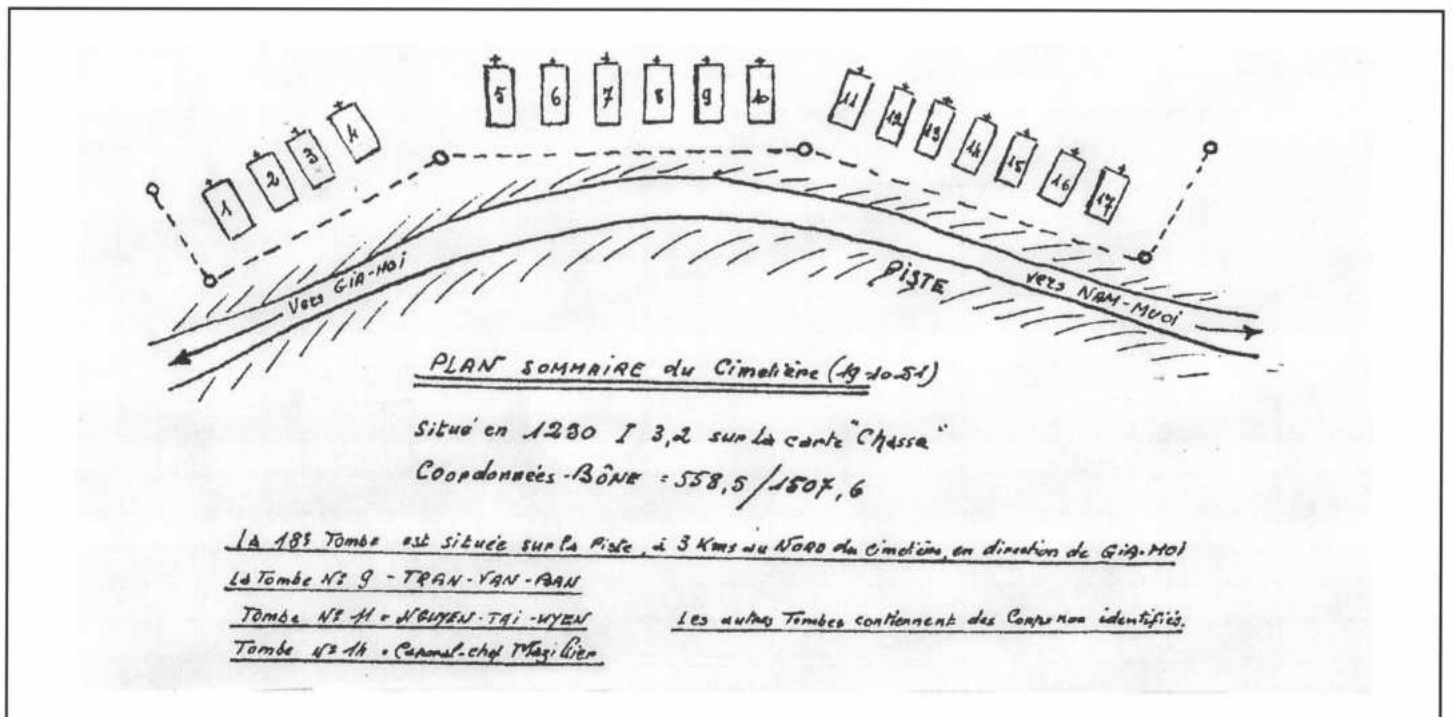 1 2 3 4 5 6 7 8 9 10 11 12 13 14 15 16 17
Vers GIA-HOI
PISTE
vers NAM-MUOI
PLAN SOMMAIRE du Cimetière (19-10-51)
Situé en 1230 I 3,2 sur la carte "Chasse"
Coordonnées-BÔNE = 558,5/1507,6
La 18è Tombe est située sur la Piste, à 3 Kms au NORD du cimetière, en direction de GIA-HOI
La Tombe N° 9 - TRAN-VAN-BAN
Tombe N° 11 - NGUYEN-TAI-UYEN
Les autres Tombes contiennent des Corps non identifiés.
Tombe N° 14 - Caporal-chef